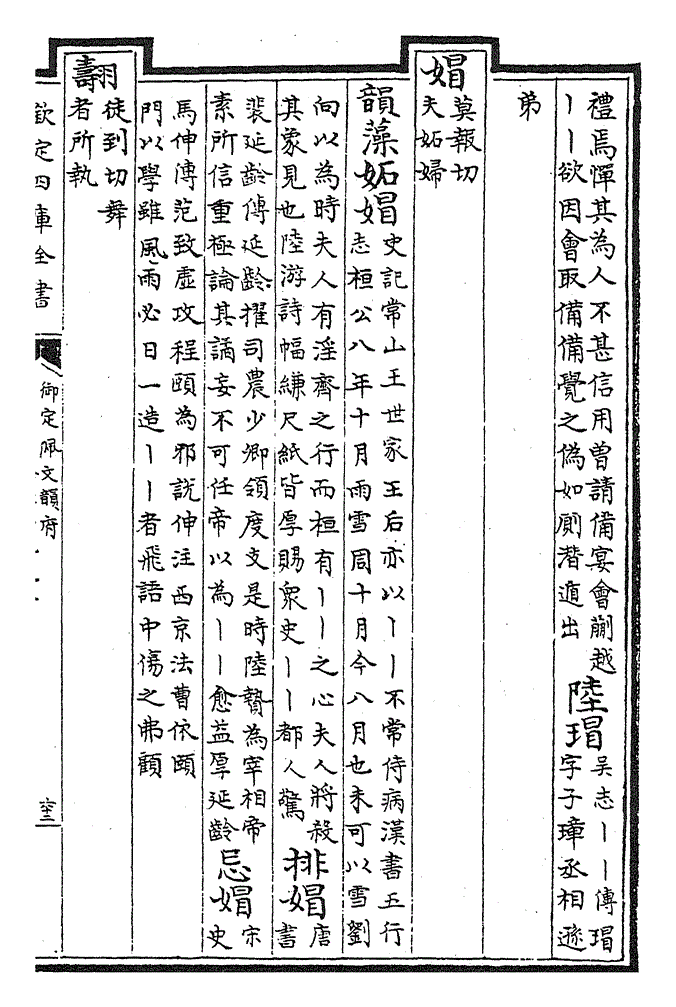 禮焉憚其為人不甚信用曾請備宴會蒯越
丨丨欲因會取備備覺之偽如厠潛遁出
陸瑁
吴志丨丨傳瑁
字子璋丞相遜
弟
媢
莫報切
夫妬婦
韻藻妬媢
史記常山王世家王后亦以丨丨不常侍病漢書五行
志桓公八年十月雨雪周十月今八月也未可以雪劉
向以為時夫人有淫齊之行而桓有丨丨之心夫人將殺
其象見也陸游詩幅縑尺紙皆厚賜衆史丨丨都人驚
排媢
唐
書
裴延齡傳延齡擢司農少卿領度支是時陸贄為宰相帝
素所信重極論其譎妄不可任帝以為丨丨愈益厚延齡
忌媢
宋
史
馬伸傳范致虚攻程頤為邪說伸注西京法曹依頤
門以學雖風雨必日一造丨丨者飛語中傷之弗顧
翿
徒到切舞
者所執
欽定四庫全書
御定佩文韻府